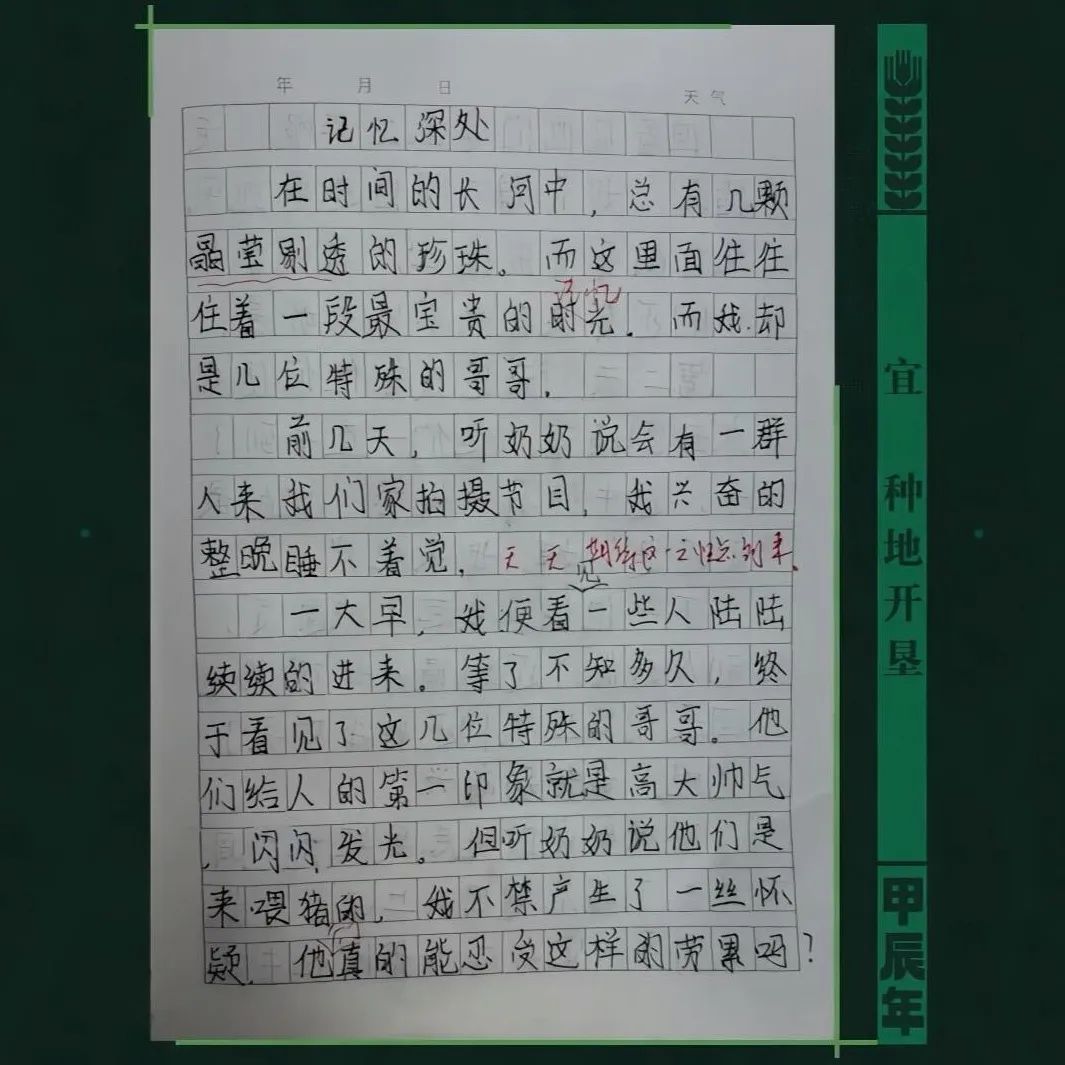 年 月 日 天气
记忆深处
在时间的长河中，总有几颗
晶莹剔透的珍珠。而这里面往往
记忆
住着一段最宝贵的时光。而我却
是几位特殊的哥哥。
前几天，听奶奶说会有一群
人来我们家拍摄节目，我兴奋的
整晚睡不着觉，天天期待这一天
见
一大早，我便看一些人陆陆
续续的进来。等了不知多久，终
于看见了这几位特殊的哥哥。他
们给人的第一印象就是高大帅气
，闪闪发光。但听奶奶说他们是
来喂猪的，我不禁产生了一丝怀
们
疑，他真的能忍受这样的劳累吗？
宜
种地开垦
甲辰年